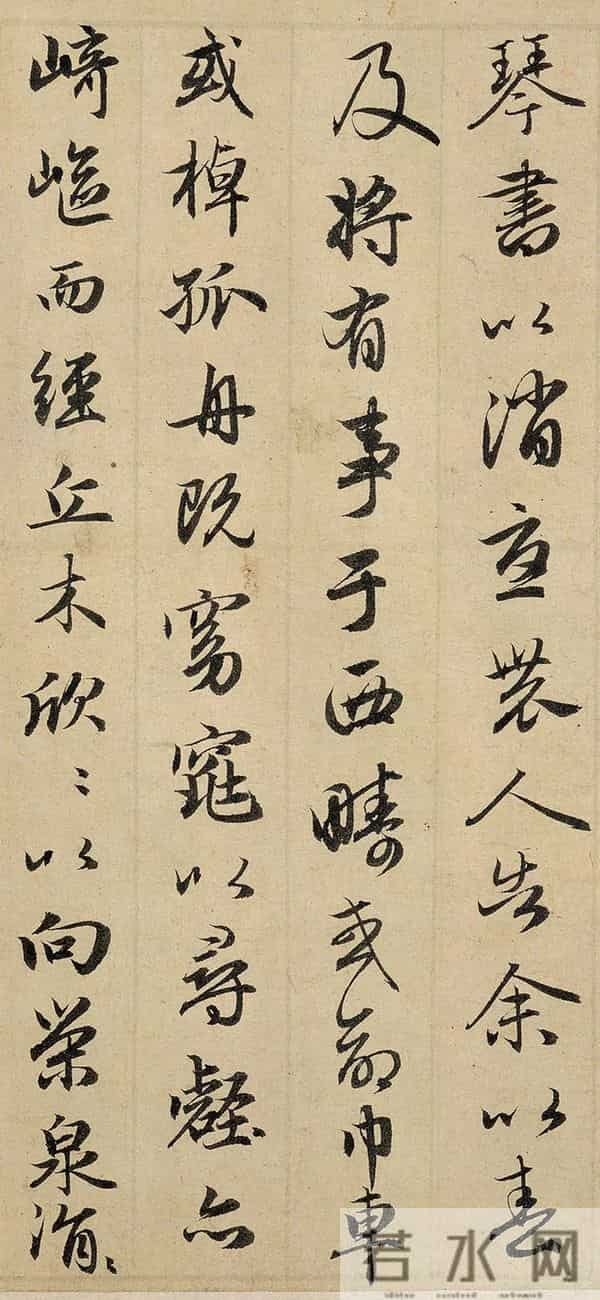 琴書以消憂農人告余以春
及將有事于西疇或命巾車
或棹孤舟既窈窕以尋壑亦
崎嶇而經丘木欣〻以向榮泉涓〻
若水网